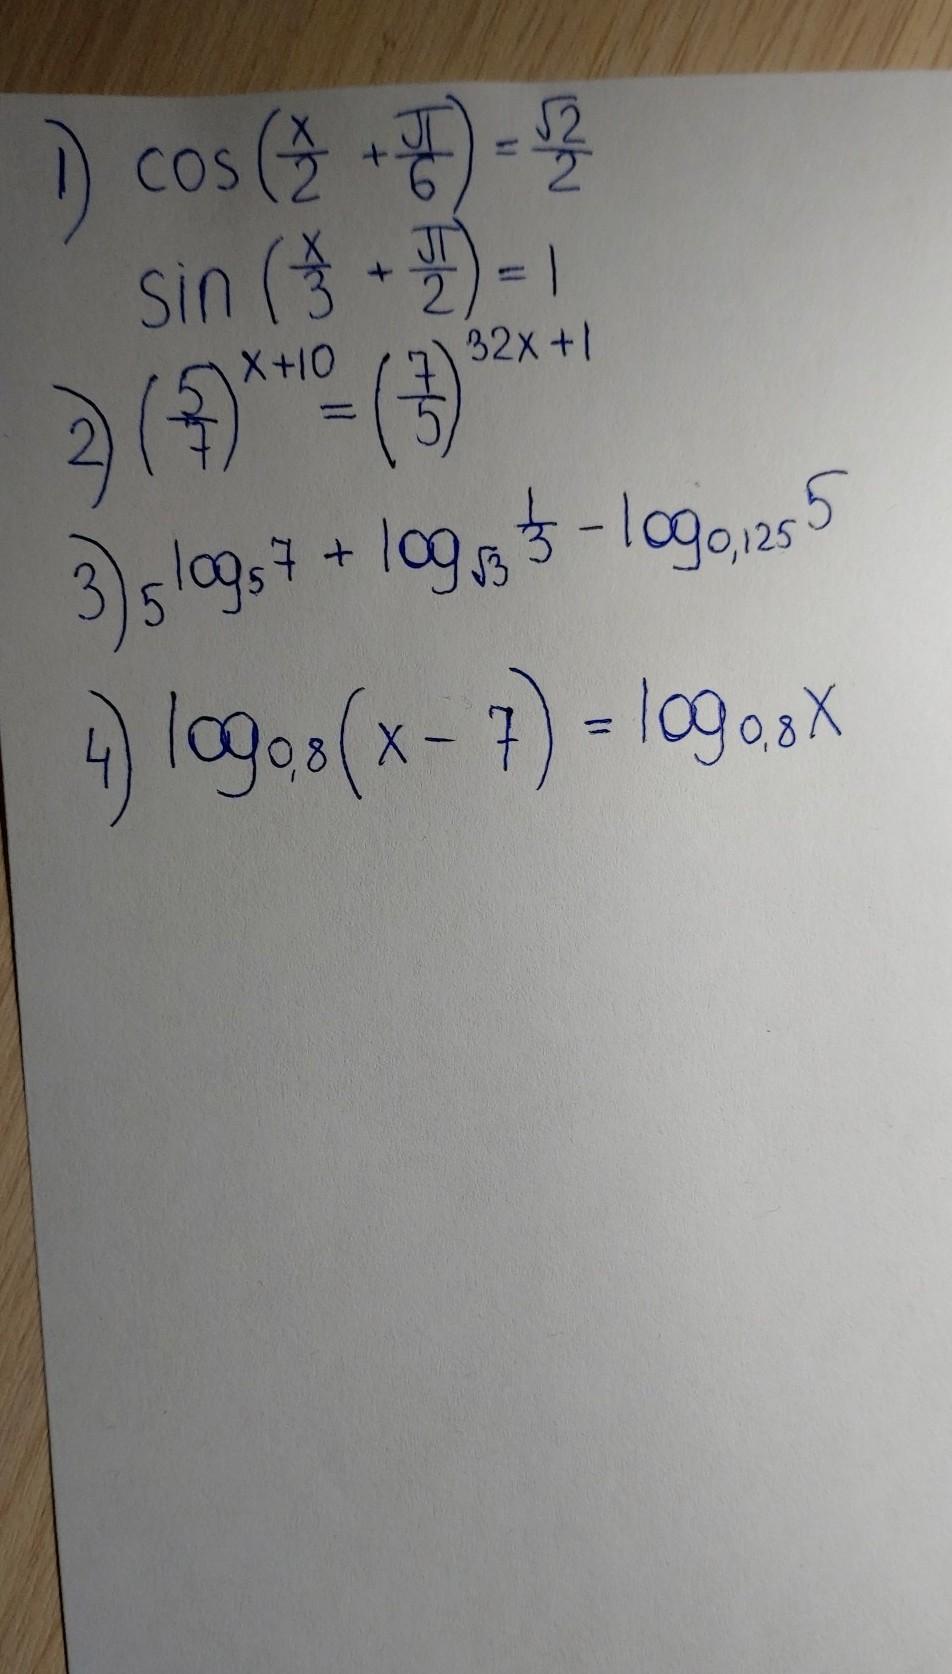 1) cos(x/2 + π/6) = √2/2
sin(x/3 + π/2) = 1
2) (5/7)^(x+10) = (7/5)^(32x+1)
3) 5^(log₅7) + log_√3 1/3 − log_0,125 5
4) log_0,8(x − 7) = log_0,8 x